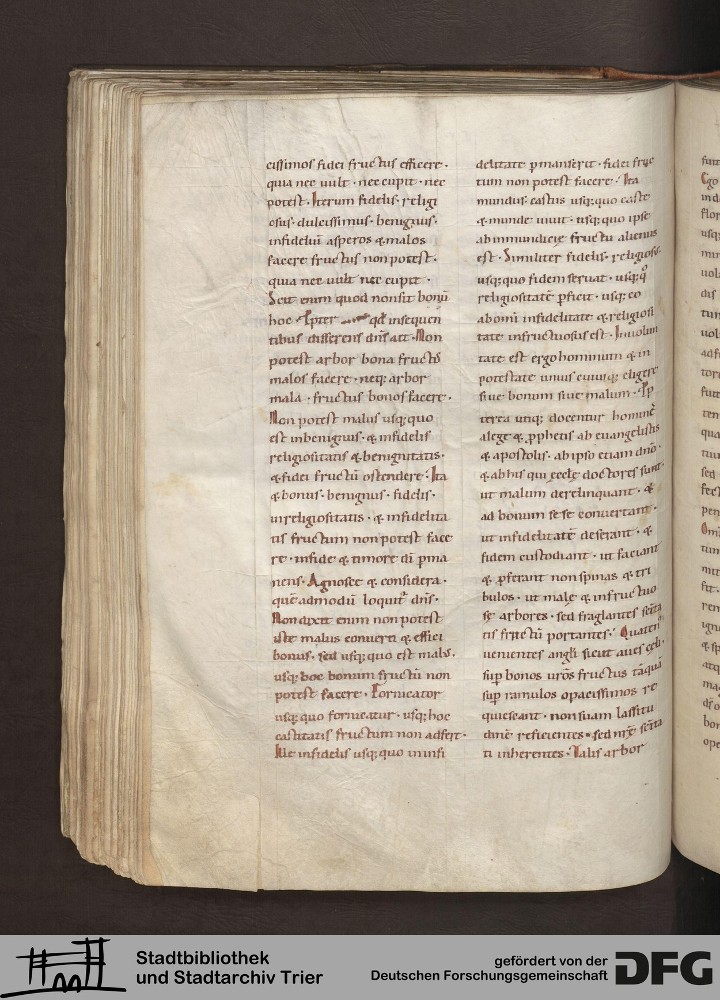 cissimos fidei fructus efficere·
quia nec uult · nec cupit · nec
potest · Iterum fidelis · religi
osus · dulcissimus · benignus ·
infideliū asperos & malos
facere fructus non potest ·
quia nec uult nec cupit ·
Scit enim quod non sit bonū
hoc · qđ insequen
tibus disserens dn̄s ait · Non
potest arbor bona fructꝰ
malos facere · neq; arbor
mala · fructus bonos facere ·
Non potest malus usq; quo
est inbenignus · & infidelis
religiositatis & benignitatis ·
& fidei fructū ostendere · Ita
& bonus · benignus · fidelis ·
inreligiositatis · & infidelita
tis fructum non potest face
re · in fide & timore dī pma
nens · Agnosce & considera ·
quē admodū loquit᷑ dn̄s ·
Non dixit enim non potest
iste malus conuerti & effici
bonus · sed usq; quo est malꝰ ·
usq; hoc bonum fructū non
potest facere · Fornicator
usq; quo fornicatur · usq; hoc
castitatis fructum non adfert ·
Ille infidelis usq; quo in infi
delitate pmanserit · fidei fruc
tum non potest facere · Ita
mundus · castus usq; quo caste
& munde uiuit · usq; quo ipse
ab inmundicie fructu alienus
est · Similiter fidelis · religiosꝰ ·
usq; quo fidem seruat · usq; q̊
religiositatē pficit · usq; eo
ab omi infidelitate & religiosi
tate infructuosus est · Inuolun
tate est ergo hominum & in
potestate unius cuiusq; eligere
siue bonum siue malum · Pp
terea utiq; docentur hominē
a lege & pphetis ab euangelistis
& apostolis · ab ipso etiam dn̄o ·
& ab his qui eccłe doctores sunt ·
ut malum derelinquant · &
ad bonum se se conuertant ·
ut infidelitatē deserant · &
fidem custodiant · ut faciant
& pferant non spinas & tri
bulos · ut male & infructuo
se arbores · sed fraglantes
tis fructū portantes ·
uenientes angli sicut aues cęli ·
sup bonos ur̄os fructus tāquā
sup ramulos opacissimos re
quiescant · non suam lassitu
dinē reficientes · sed nr̄ę
ti inherentes · Talis arbor
Stadtbibliothek
und Stadtarchiv Trier
gefördert von der
Deutschen Forschungsgemeinschaft
DFG